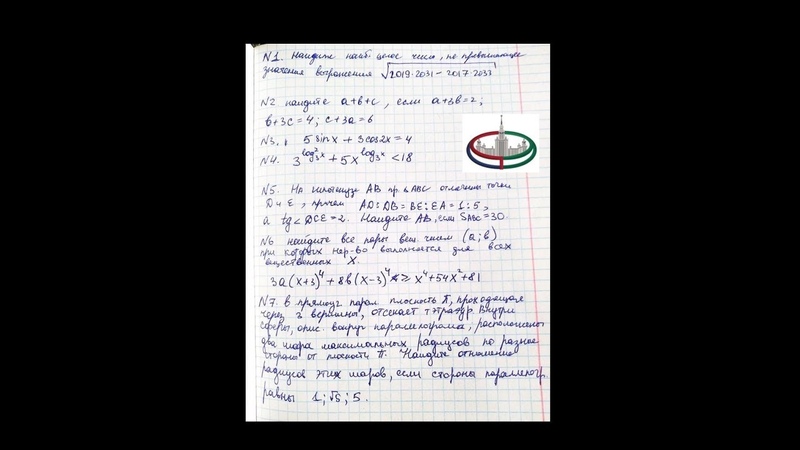 N1. Найдите наиб. целое число, не превышающее
значения выражения √2019·2031 − 2017·2033
N2 найдите a+b+c, если a+3b=2;
b+3c=4; c+3a=6
N3. 5 sinx + 3cos2x = 4
N4. 3^log₃²x + 5x^log₃x < 18
N5. На гипотенузе AB пр. △ ABC отмечены точки
D и E, причем AD:DB = BE:EA = 1:5,
а tg∠DCE = 2. Найдите AB, если S△ABC = 30.
N6 найдите все пары вещ. чисел (a; b)
при которых нер-во выполняется для всех
вещественных X.
3a(x+3)⁴ + 8b(x−3)⁴ ≥ x⁴ + 54x² + 81
N7. В прямоуг. парал. плоскость П, проходящая
через 3 вершины, отсекает тэтраэдр. Внутри
сферы, опис. вокруг параллелограма, расположены
два шара максимальных радиусов по разные
стороны от плоскости П. Найдите отношение
радиусов этих шаров, если стороны параллелогр.
равны 1; √5; 5.